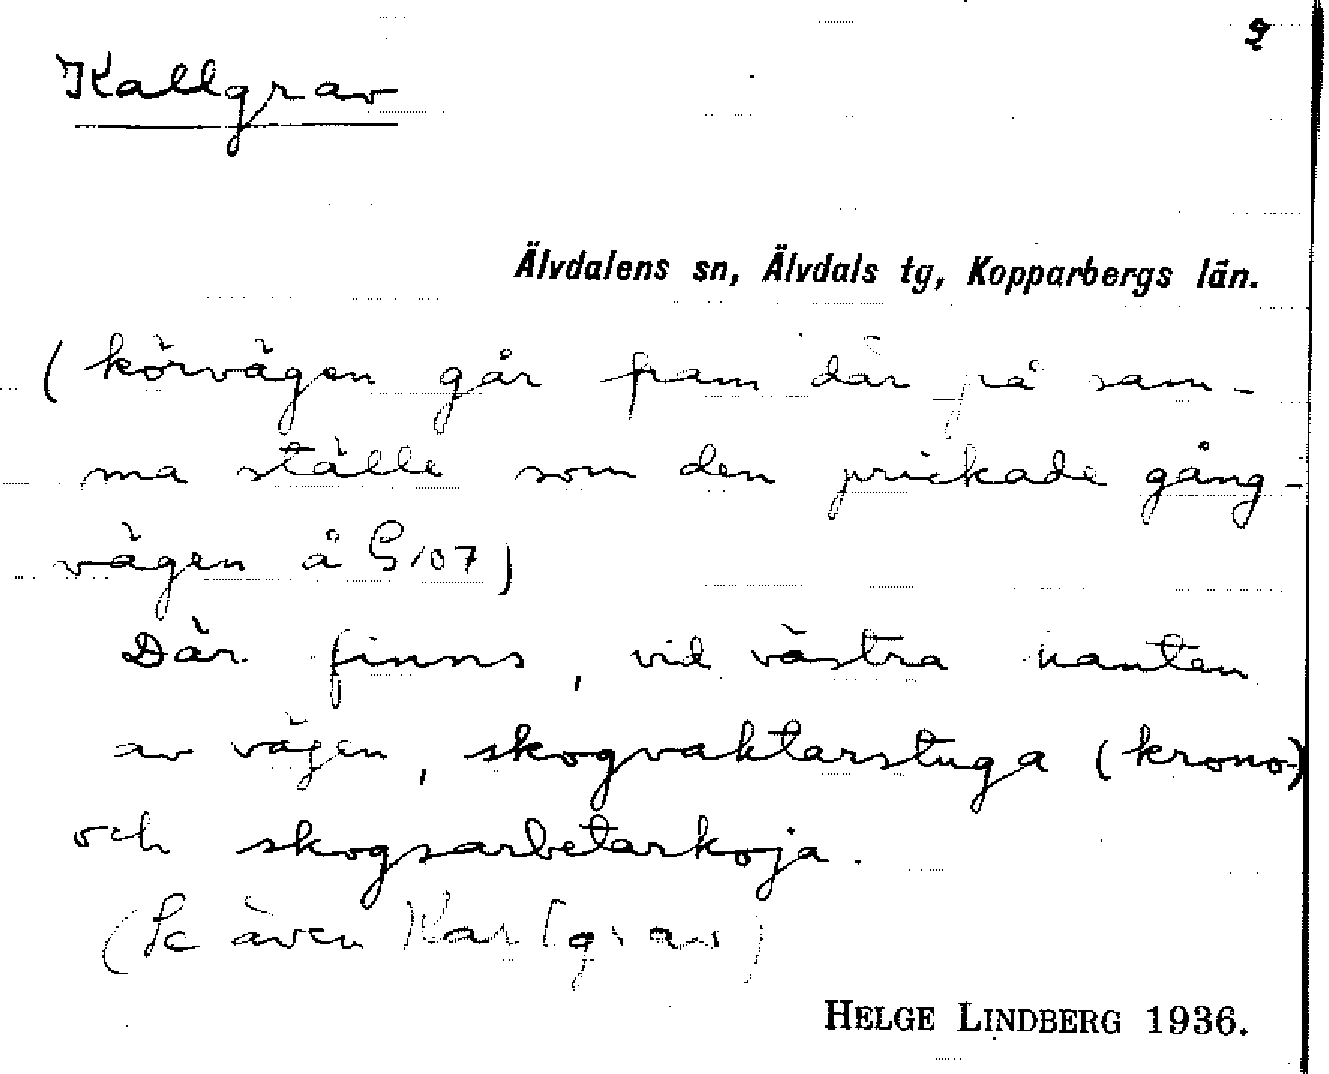 2
Kallgrav
Älvdalens sn, Älvdals tg, Kopparbergs län.
(körvägen går fram där på sam-
ma ställe som den prickade gång-
vägen å G107)
Där finns, vid västra kanten
av vägen, skogvaktarstuga (krono-)
och skogsarbetarkoja.
(Se även
HELGE LINDBERG 1936.